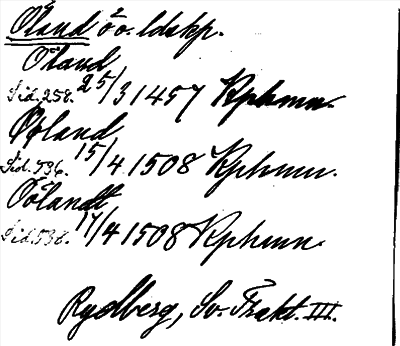 Öland ö o. ldskp.
Öland
Sid. 258. 25/3 1457 Kphmn.
Øfland
Sid. 536. 15/4 1508 Kphmn.
Öölandt
Sid. 538. 17/4 1508 Kphmn.
Rydberg, Sv. Trakt. III.